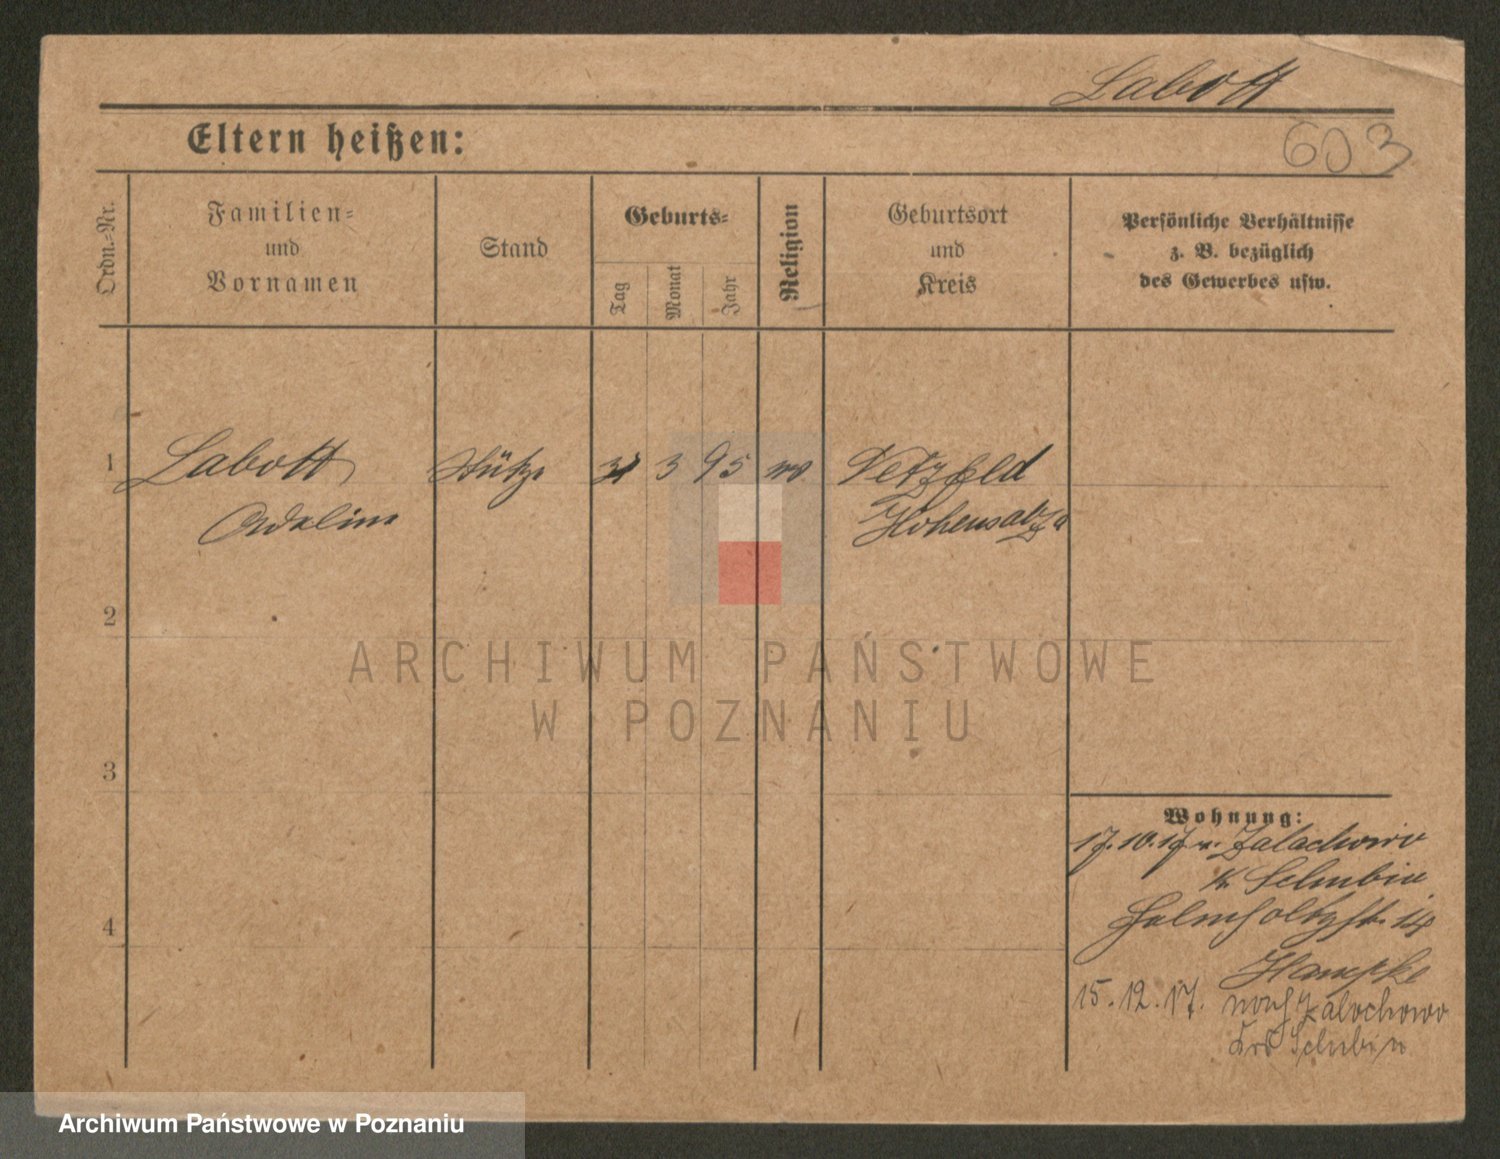 Labott
Eltern heißen:
603
Ordn.-Nr.
Familien-
und
Vornamen
Stand
Geburts-
Tag
Monat
Jahr
Religion
Geburtsort
und
Kreis
Persönliche Verhältnisse
z. B. bezüglich
des Gewerbes usw.
1
Labott
Adeline
Stütze
3 95
Netzfeld
Hohensalza
2
3
4
Wohnung:
17.10.17 v. Zalachowo
Kr. Schubin
Helmholtzstr. 14
Hampke
15.12.17. nach Zalachowo
Krs Schubin
ARCHIWUM PAŃSTWOWE
W POZNANIU
Archiwum Państwowe w Poznaniu